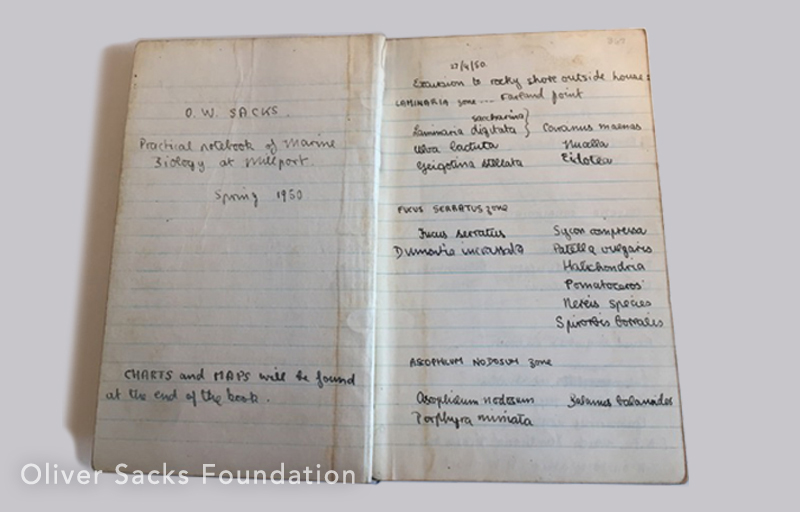 O. W. SACKS.
Practical notebook of Marine
Biology at Millport.
Spring 1950
CHARTS and MAPS will be found
at the end of the book.
27/4/50.
Excursion to rocky shore outside house:
LAMINARIA zone --- Farland point
saccharina
Laminaria digitata } Carcinus maenas
Ulva lactuca Nucella
Gigartina stellata Eilotea
FUCUS SERRATUS zone
Fucus serratus Sycon compressa
Dumontia incrassata Patella vulgaris
Halichondria
Pomatoceros
Nereis species
Spirorbis borealis
ASCOPHILUM NODOSUM zone
Ascophilum nodosum Balanus balanoides
Porphyra miniata
Oliver Sacks Foundation